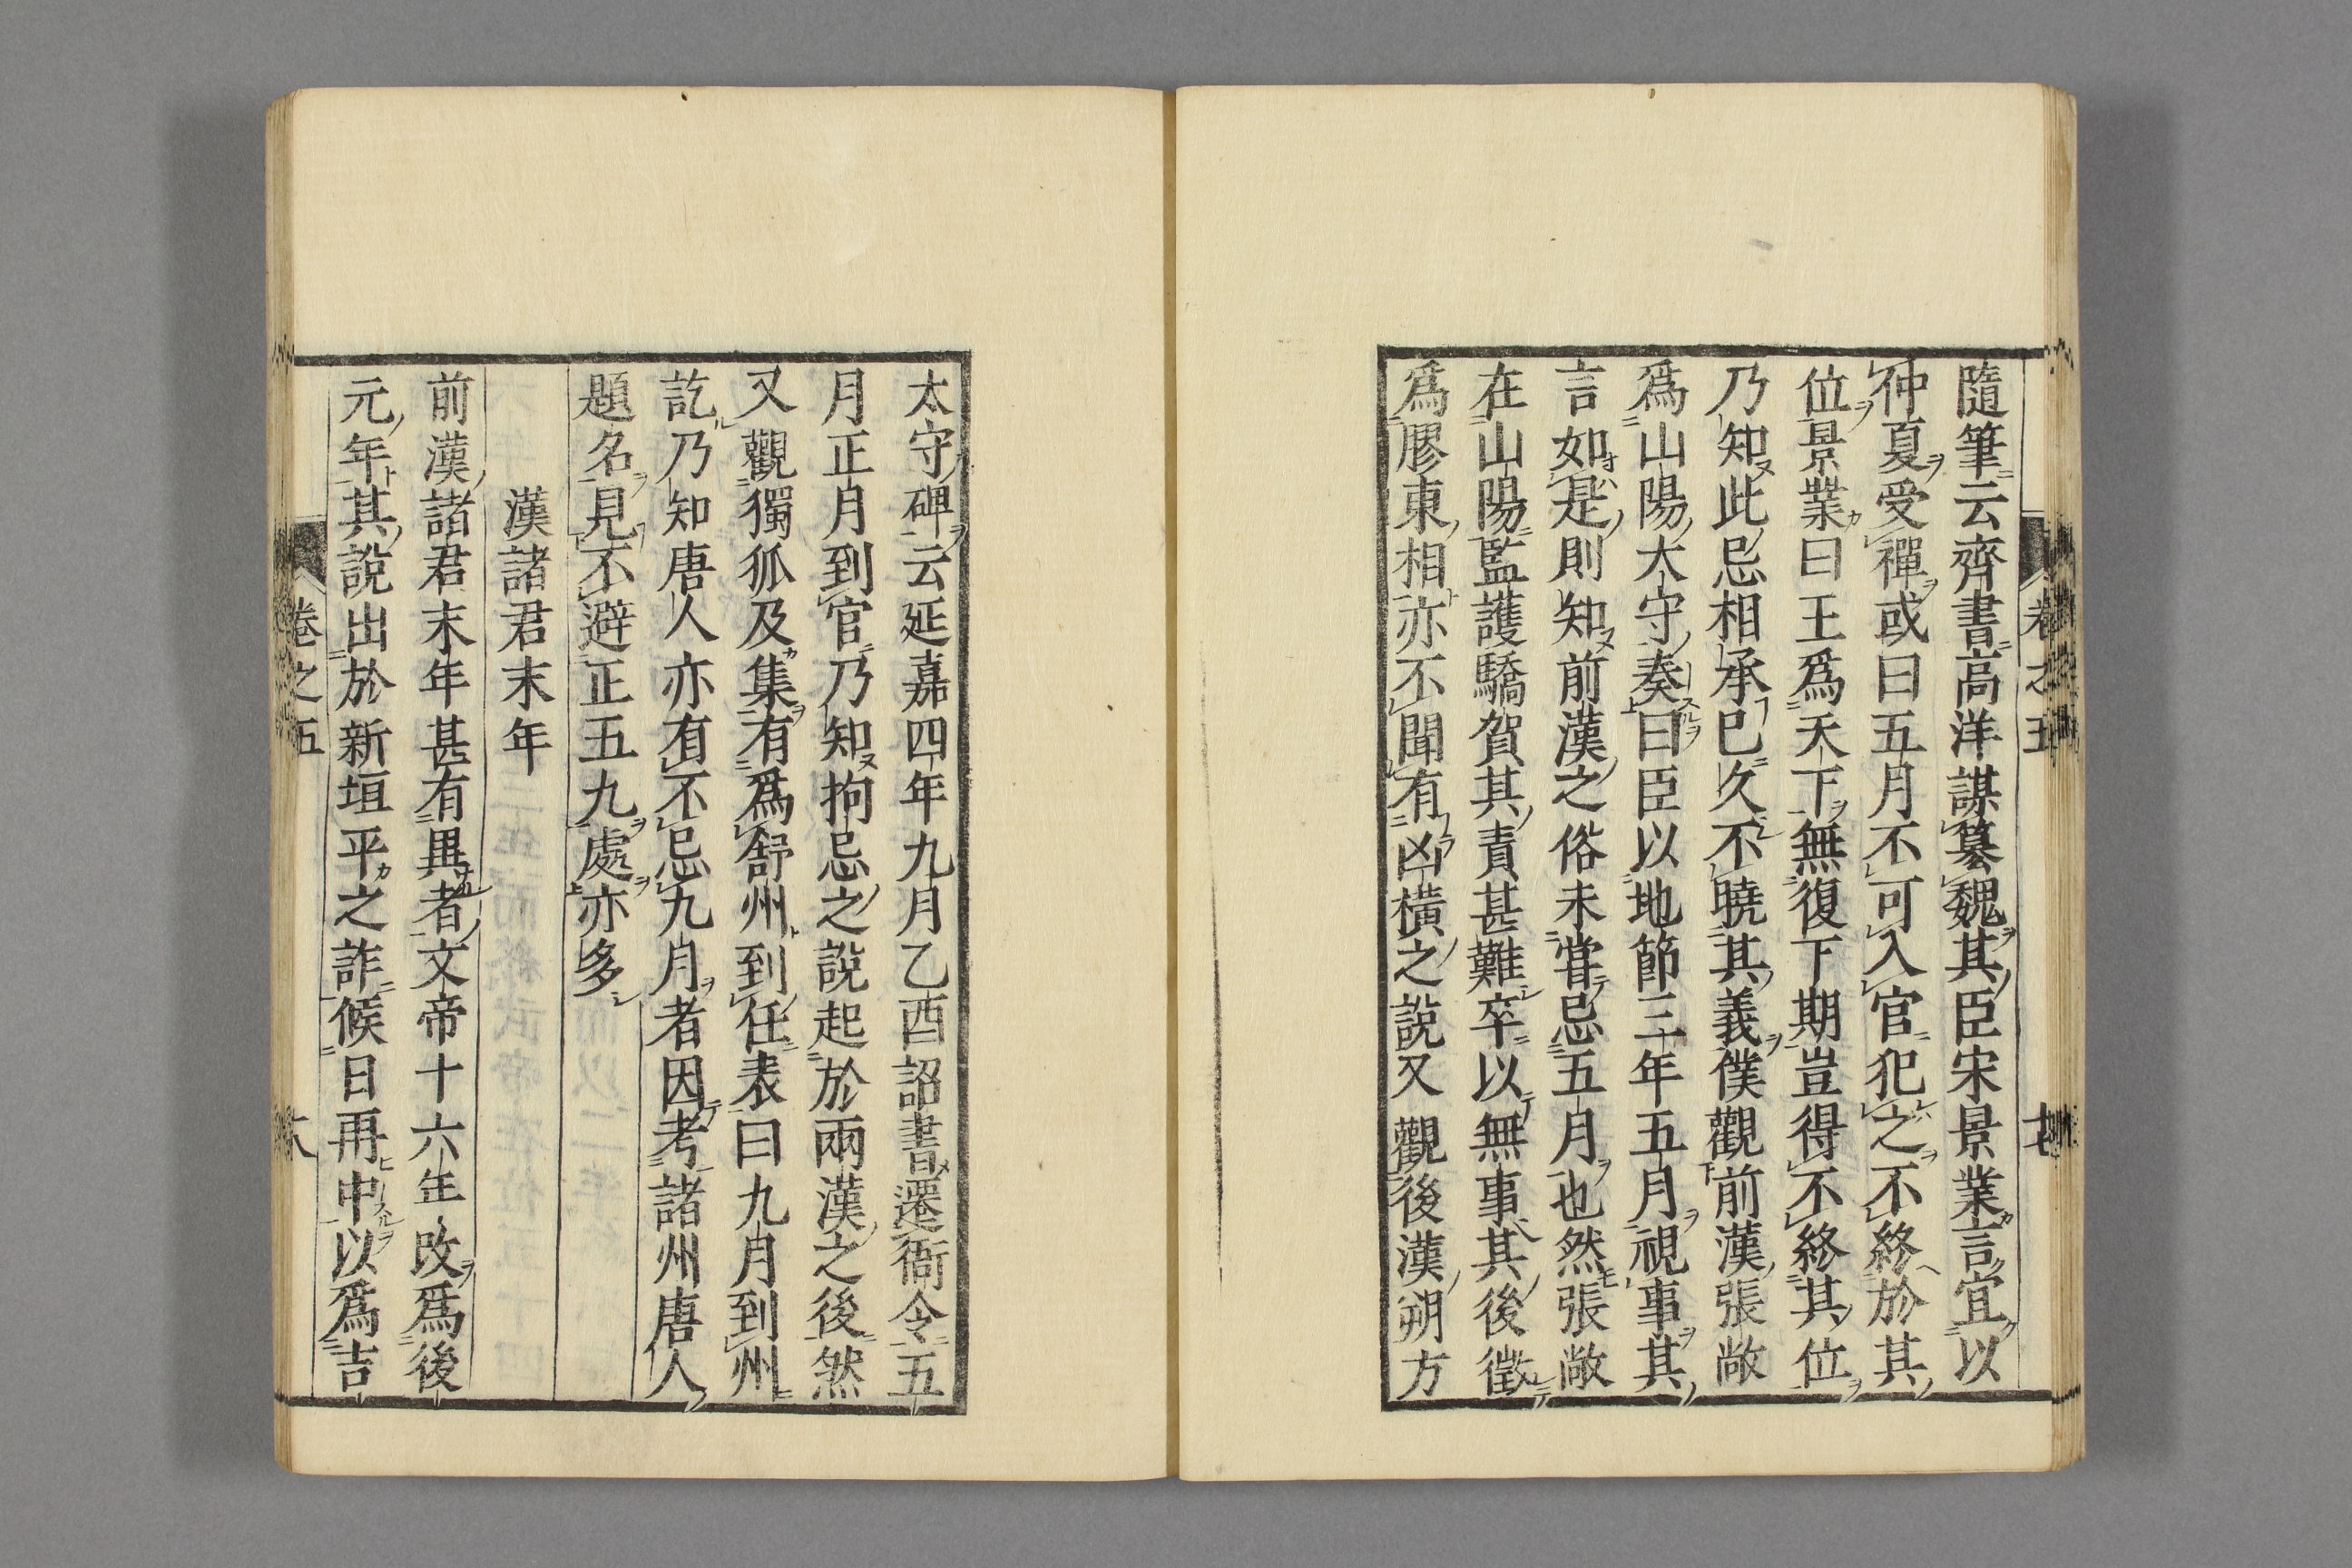 隨筆云齊書高洋謀簒魏其臣宋景業言宜以
仲夏受禪或曰五月不可入官犯之不終於其
位景業曰王爲天下無復下期豈得不終其位
乃知此忌相承已久不曉其義僕觀前漢張敞
爲山陽大守奏曰臣以地節三年五月視事其
言如是則知前漢之俗未甞忌五月也然張敞
在山陽監護驕賀其責甚難卒以無事其後徵
爲膠東相亦不聞有凶橫之説又觀後漢朔方
太守碑云延嘉四年九月乙酉詔書遷衙令五
月正月到官乃知拘忌之説起於兩漢之後然
又觀獨狐及集有爲舒州到任表曰九月到州
訖乃知唐人亦有不忌九月者因考諸州唐人
題名見不避正五九處亦多
漢諸君末年
前漢諸君末年甚有異者文帝十六年改爲後
元年其説出於新垣平之詐候日再中以爲吉
卷之五